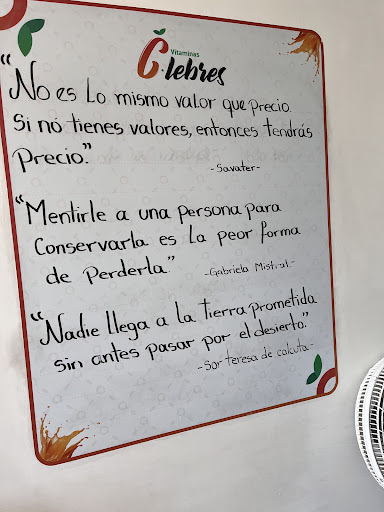 Vitaminas
C.lebres
"No es lo mismo valor que precio.
Si no tienes valores, entonces tendrás
Precio."
-Savater-
"Mentirle a una persona para
Conservarla es la peor forma
de perderla."
-Gabriela Mistral-
"Nadie llega a la tierra prometida
sin antes pasar por el desierto."
-Sor teresa de calcuta-